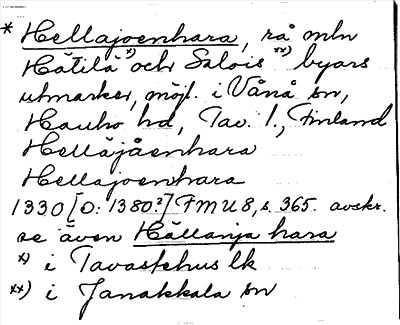 * Hellajoenhara, rå mln
Hätilä x) och Salois xx) byars
utmarker, möjl. i Vånå sn,
Hauho hd, Tav. l., Finland
Hellåjåenhara
Hellajoenhara
1330 [O: 1380?] FMU 8, s. 365. avskr.
se även Hällanja hara
x) i Tavastehus lk
xx) i Janakkala sn